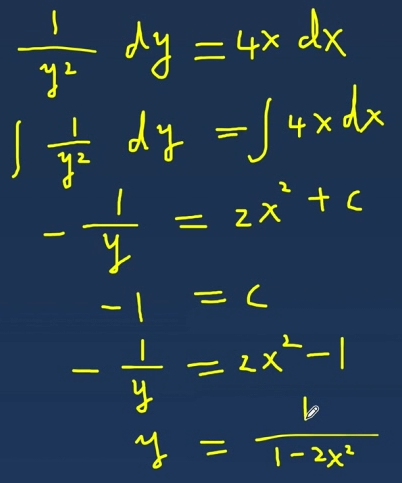 1/y² dy = 4x dx
∫ 1/y² dy = ∫ 4x dx
- 1/y = 2x² + c
-1 = c
- 1/y = 2x² - 1
y = 1/(1-2x²)